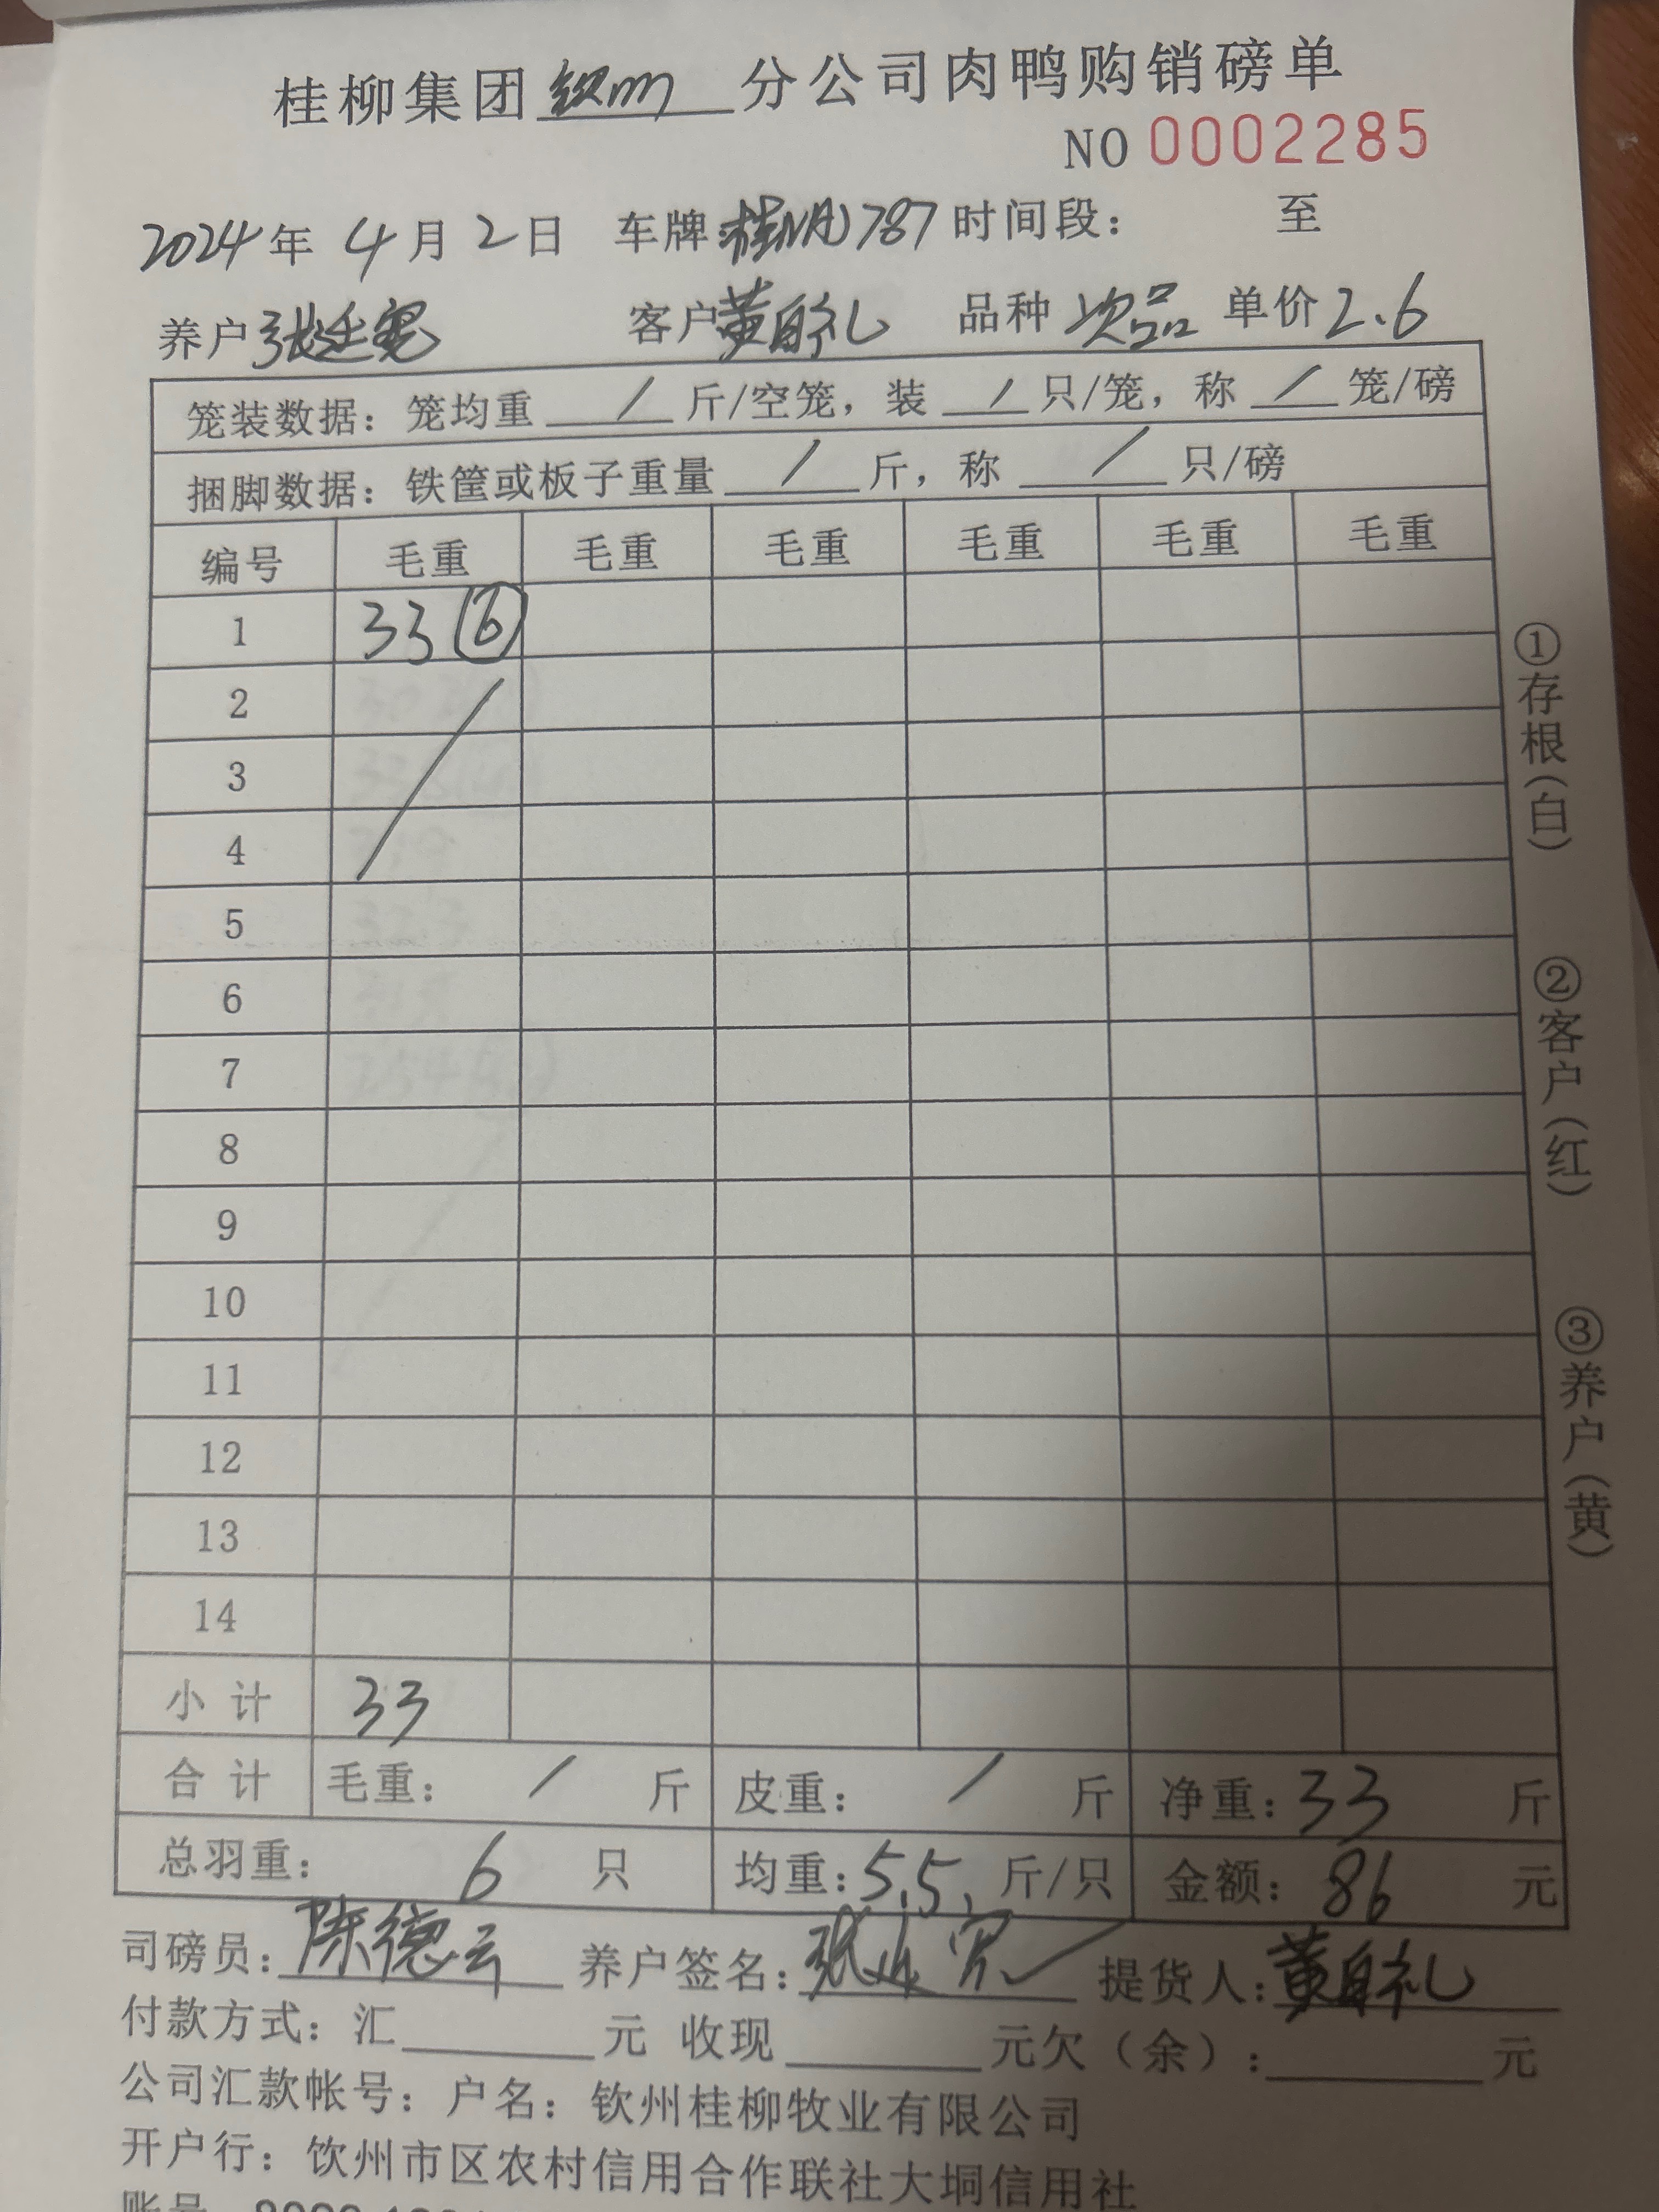 桂柳集团钦州分公司肉鸭购销磅单
NO 0002285
2024年4月2日 车牌:桂 787 时间段: 至
养户 张廷宽 客户 黄自礼 品种 次品 单价 2.6
笼装数据:笼均重 / 斤/空笼,装 / 只/笼,称 / 笼/磅
捆脚数据:铁筐或板子重量 / 斤,称 / 只/磅
编号 毛重 毛重 毛重 毛重 毛重 毛重
1 33 ⑥
2
3
4
5
6
7
8
9
10
11
12
13
14
小计 33
合计 毛重: / 斤 皮重: / 斤 净重:33 斤
总羽重: 6 只 均重:5.5 斤/只 金额: 86 元
司磅员:陈德云 养户签名: 提货人:黄自礼
付款方式:汇 元 收现 元欠(余): 元
公司汇款帐号:户名:钦州桂柳牧业有限公司
开户行:饮州市区农村信用合作联社大垌信用社
①存根(白)
②客户(红)
③养户(黄)